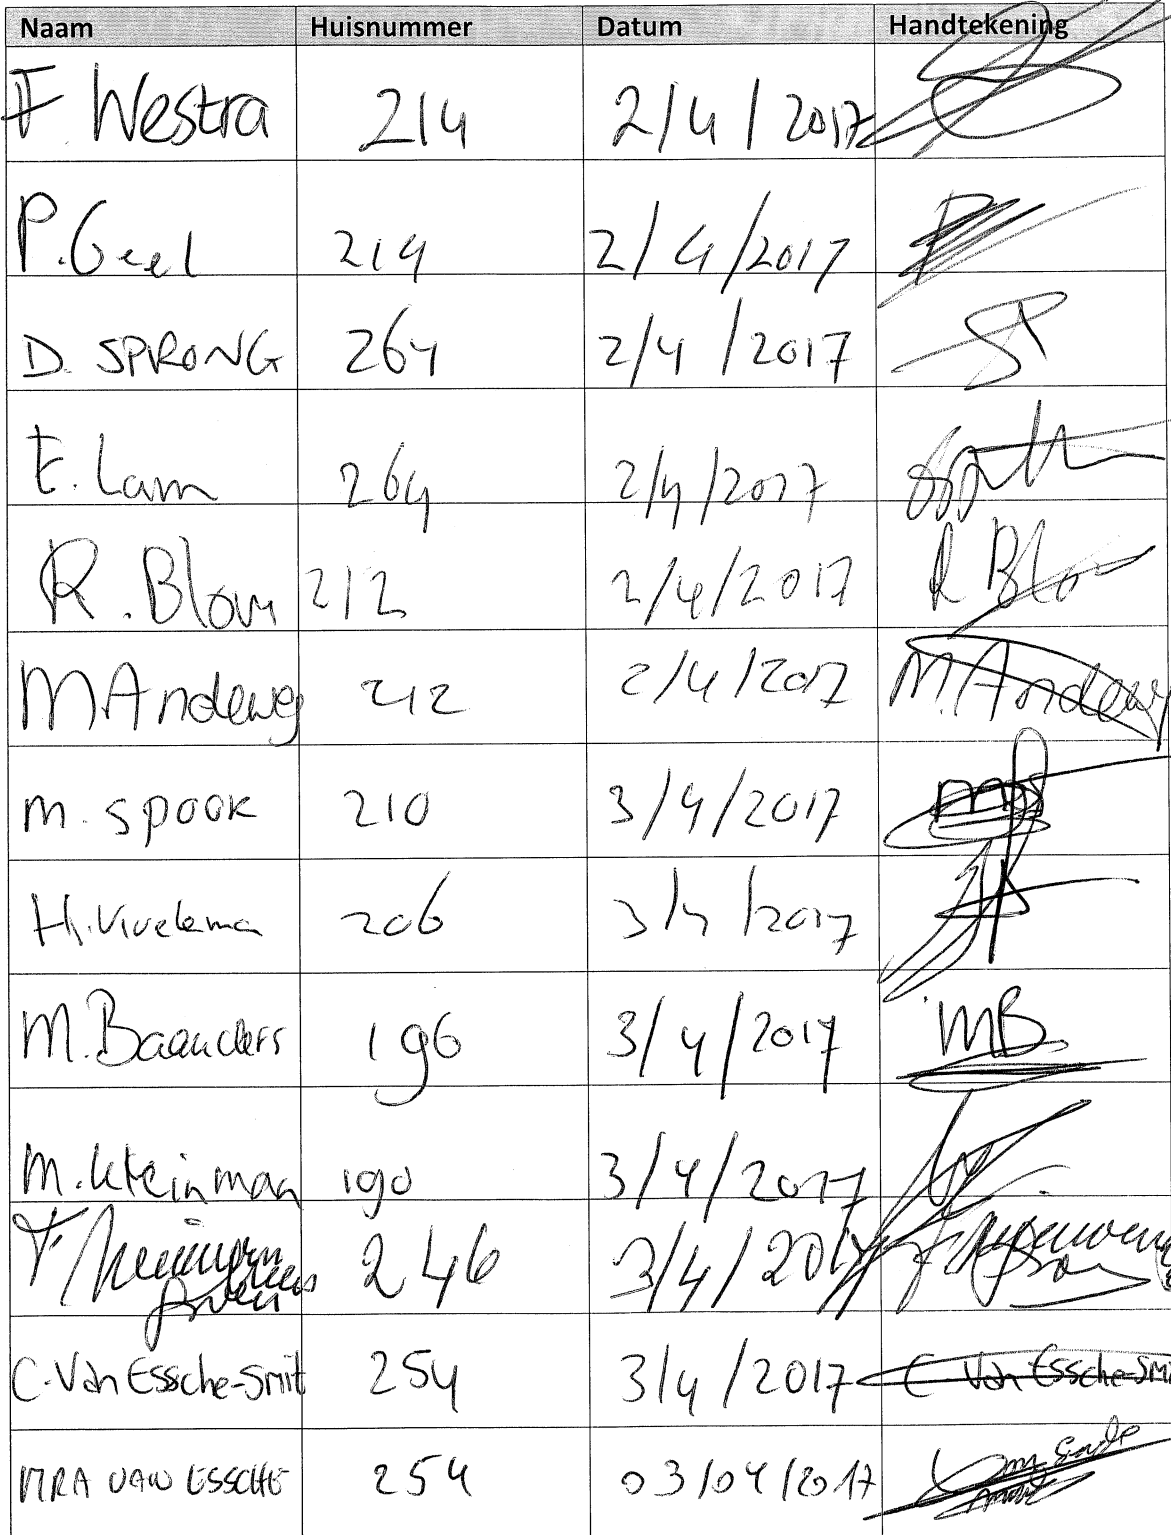 Naam Huisnummer Datum Handtekening
F. Westra 214 2/4/2017
P. Geel 214 2/4/2017
D. SPRONG 264 2/4/2017
E. Lam 264 2/4/2017
R. Blom 212 2/4/2017 R Blom
M Andeweg 212 2/4/2017 M. Andeweg
M. Spook 210 3/4/2017
H. 206 3/4/2017
M. Baanders 196 3/4/2017 MB
M. Kleinman 190 3/4/2017
F. 246 3/4/2017
C. Van Essche-Smit 254 3/4/2017 C Van Essche-Smi
MRA VAN ESSCHE 254 03/04/2017